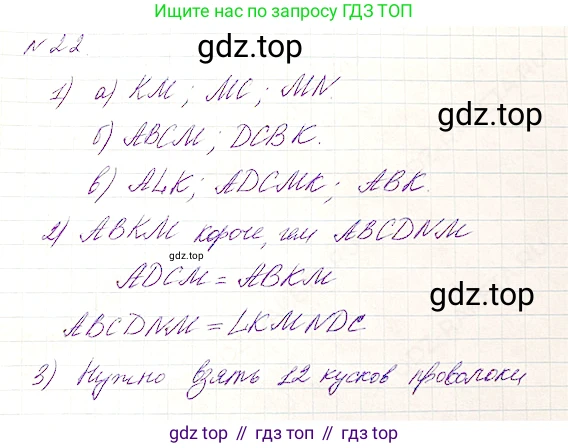 Ищите нас по запросу ГДЗ ТОП
N 22.
gdz.top
1) а) KM ; MC ; MN.
gdz.top
б) ABCM ; DCBK.
в) ALK ; ADCMK ; ABK.
2) ABKM короче, чем ABCDNM
gdz.top
ADCM = ABKM
gdz.top
ABCDNM = LKMNDC.
3) Нужно взять 12 кусков проволоки
gdz.top // гдз топ // gdz.top